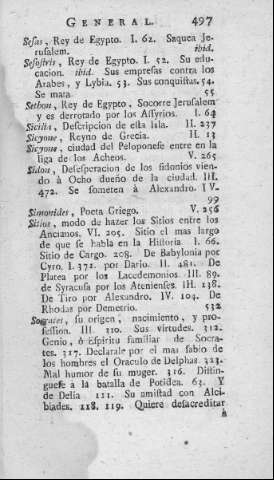 GENERAL. 497
Sesas, Rey de Egypto. I. 62. Saquea Je-
rusalem. ibid.
Sesostris, Rey de Egypto. I. 52. Su edu-
cacion. ibid. Sus empresas contra los
Arabes, y Lybia. 53. Sus conquistas. 54.
Se mata 55
Sethon, Rey de Egypto, Socorre Jerusalem
y es derrotado por los Assyrios. I. 64
Sicilia, Descripcion de esta Isla. II. 237
Sicyone, Reyno de Grecia. II. 13
Sicyone, ciudad del Peloponese entre en la
liga de los Acheos. V. 265
Sidon, Desesperacion de los sidonios vien-
do à Ocho dueño de la ciudad. III.
472. Se someten à Alexandro. IV.
99
Simonides, Poeta Griego. V. 256
Sitios, modo de hazer los Sitios entre los
Ancianos. VI. 205. Sitio el mas largo
de que se habla en la Historia I. 66.
Sitio de Cargo. 208. De Babylonia por
Cyro. I. 371. por Dario. II. 481. De
Platea por los Lacedemonios. III. 89.
de Syracusa por los Atenienses. III. 138.
De Tiro por Alexandro. IV. 104. De
Rhodas por Demetrio. 532
Socrates, su origen, nacimiento, y pro-
fession. III. 310. Sus virtudes. 312.
Genio, ò Espiritu familiar de Socra-
tes. 317. Declarale por el mas sabio de
los hombres el Oraculo de Delphas. 323.
Mal humor de su muger. 316. Distin-
guese à la batalla de Potidea. 63. Y
de Delia 111. Su amistad con Alci-
biades. 118. 119. Quiere desacreditar
à